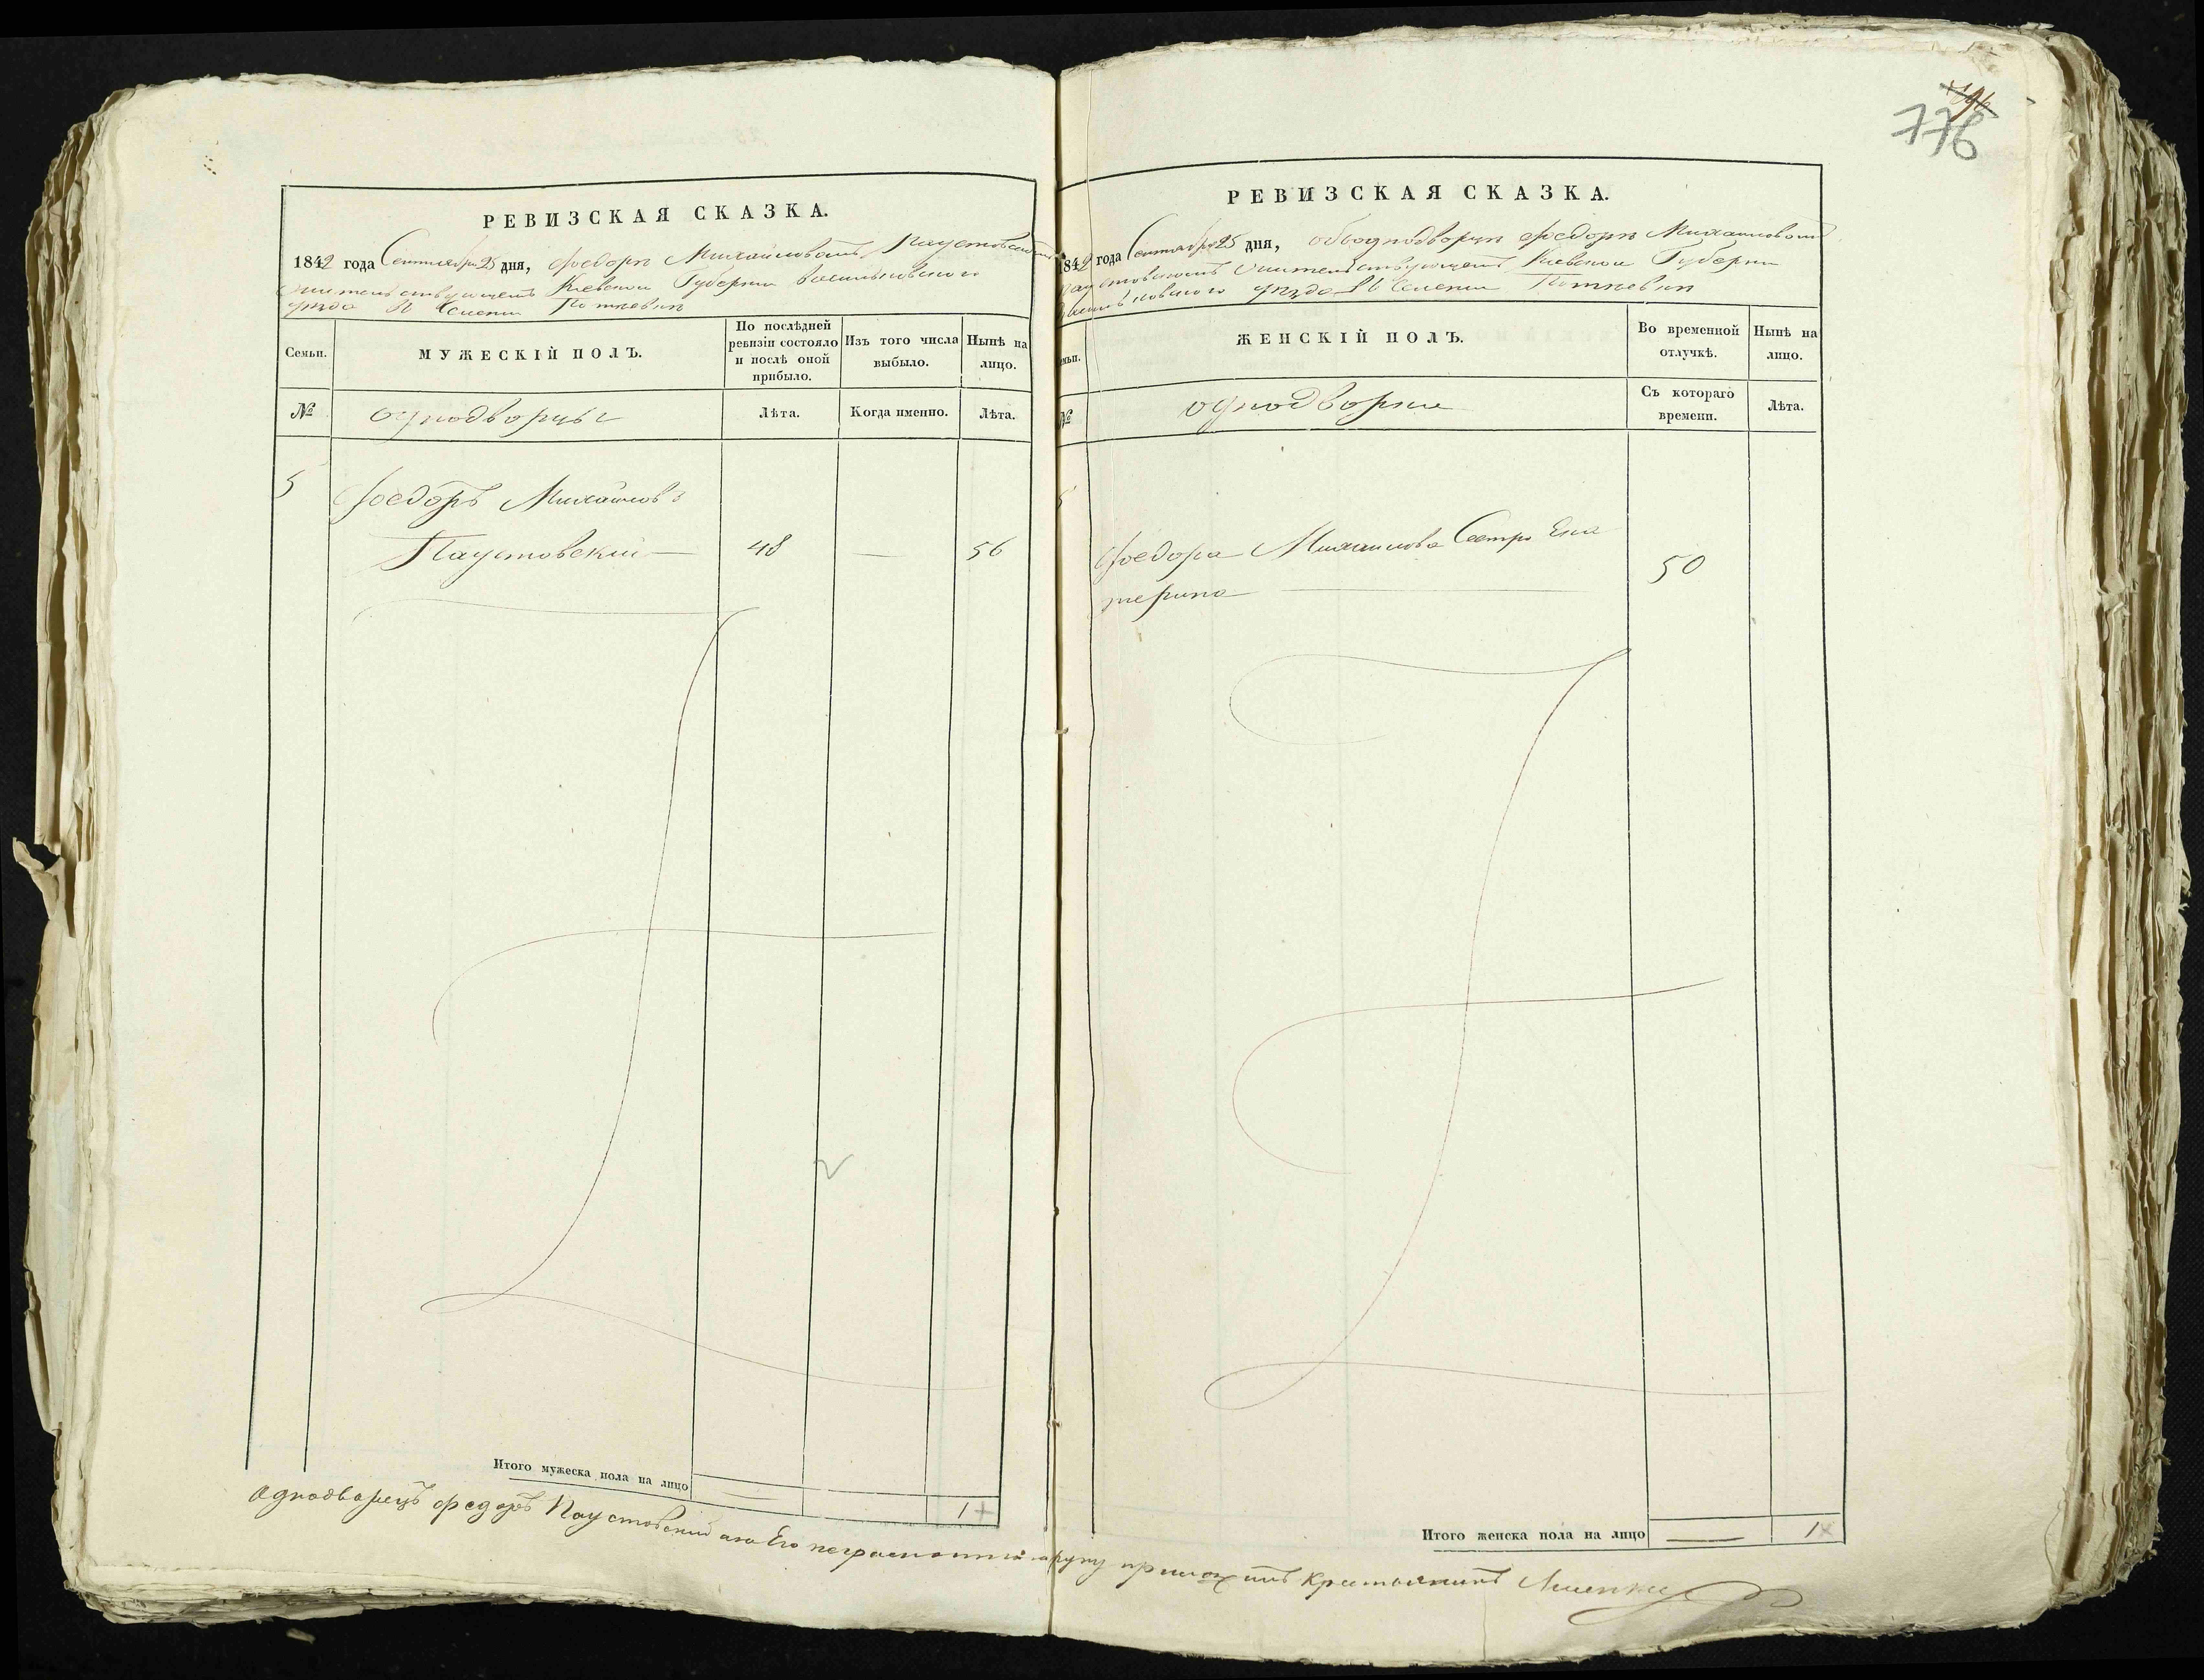 776
РЕВИЗСКАЯ СКАЗКА.
1842 года Сентября 25 дня, Федоръ Михайловъ Паустовскій
жительствующій Кіевской Губерніи Васильковскаго
уѣзда въ селеніи
Семьи.
МУЖЕСКІЙ ПОЛЪ.
По послѣдней
ревизіи состояло
и послѣ оной
прибыло.
Изъ того числа
выбыло.
Нынѣ на
лицо.
№
однодворцы
Лѣта.
Когда именно.
Лѣта.
5
Федоръ Михайловъ
Паустовскій — 48 — 56
Итого мужеска пола на лицо — 1
РЕВИЗСКАЯ СКАЗКА.
1842 года Сентября 25 дня, объ однодворцѣ Федорѣ Михайловомъ
Паустовскомъ жительствующемъ Кіевской Губерніи
Васильковскаго уѣзда въ селеніи
Семьи.
ЖЕНСКІЙ ПОЛЪ.
Во временной
отлучкѣ.
Нынѣ на
лицо.
№
однодворки
Съ котораго
времени.
Лѣта.
5
Федора Михайлова Сестра Ека
терина — 50
Итого женска пола на лицо — 1
однодворецъ Федоръ Паустовскій а за Его неграмотнаго руку приложилъ крестьянинъ